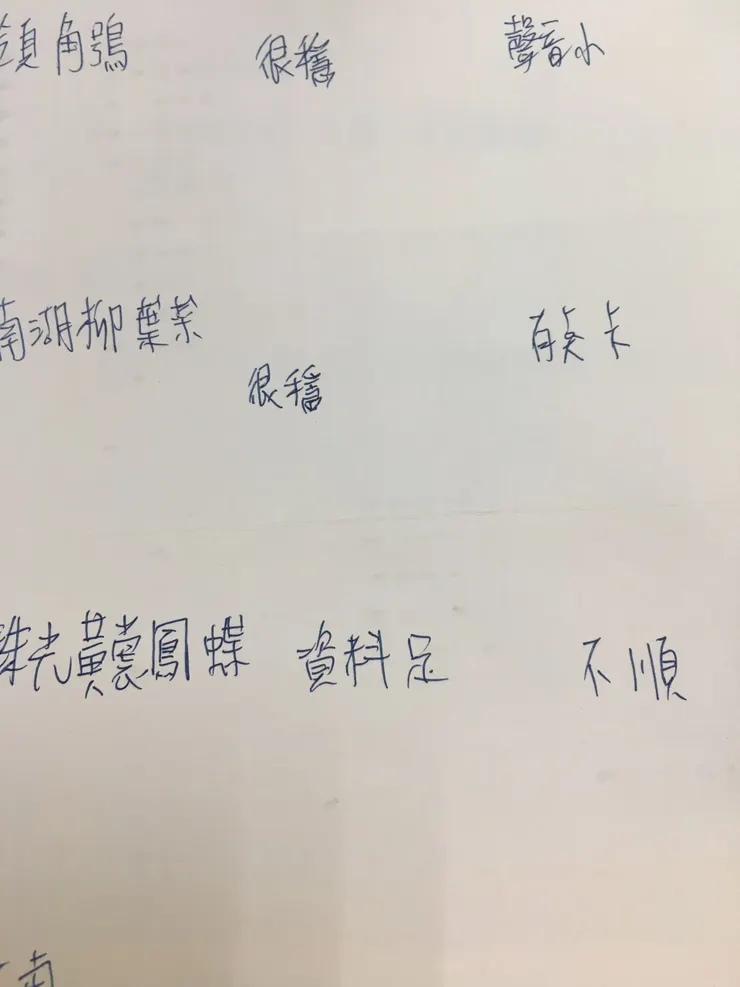 角鴞 很穩 聲音小
南湖柳葉菜 有點卡
很穩
珠光黃裳鳳蝶 資料足 不順
南